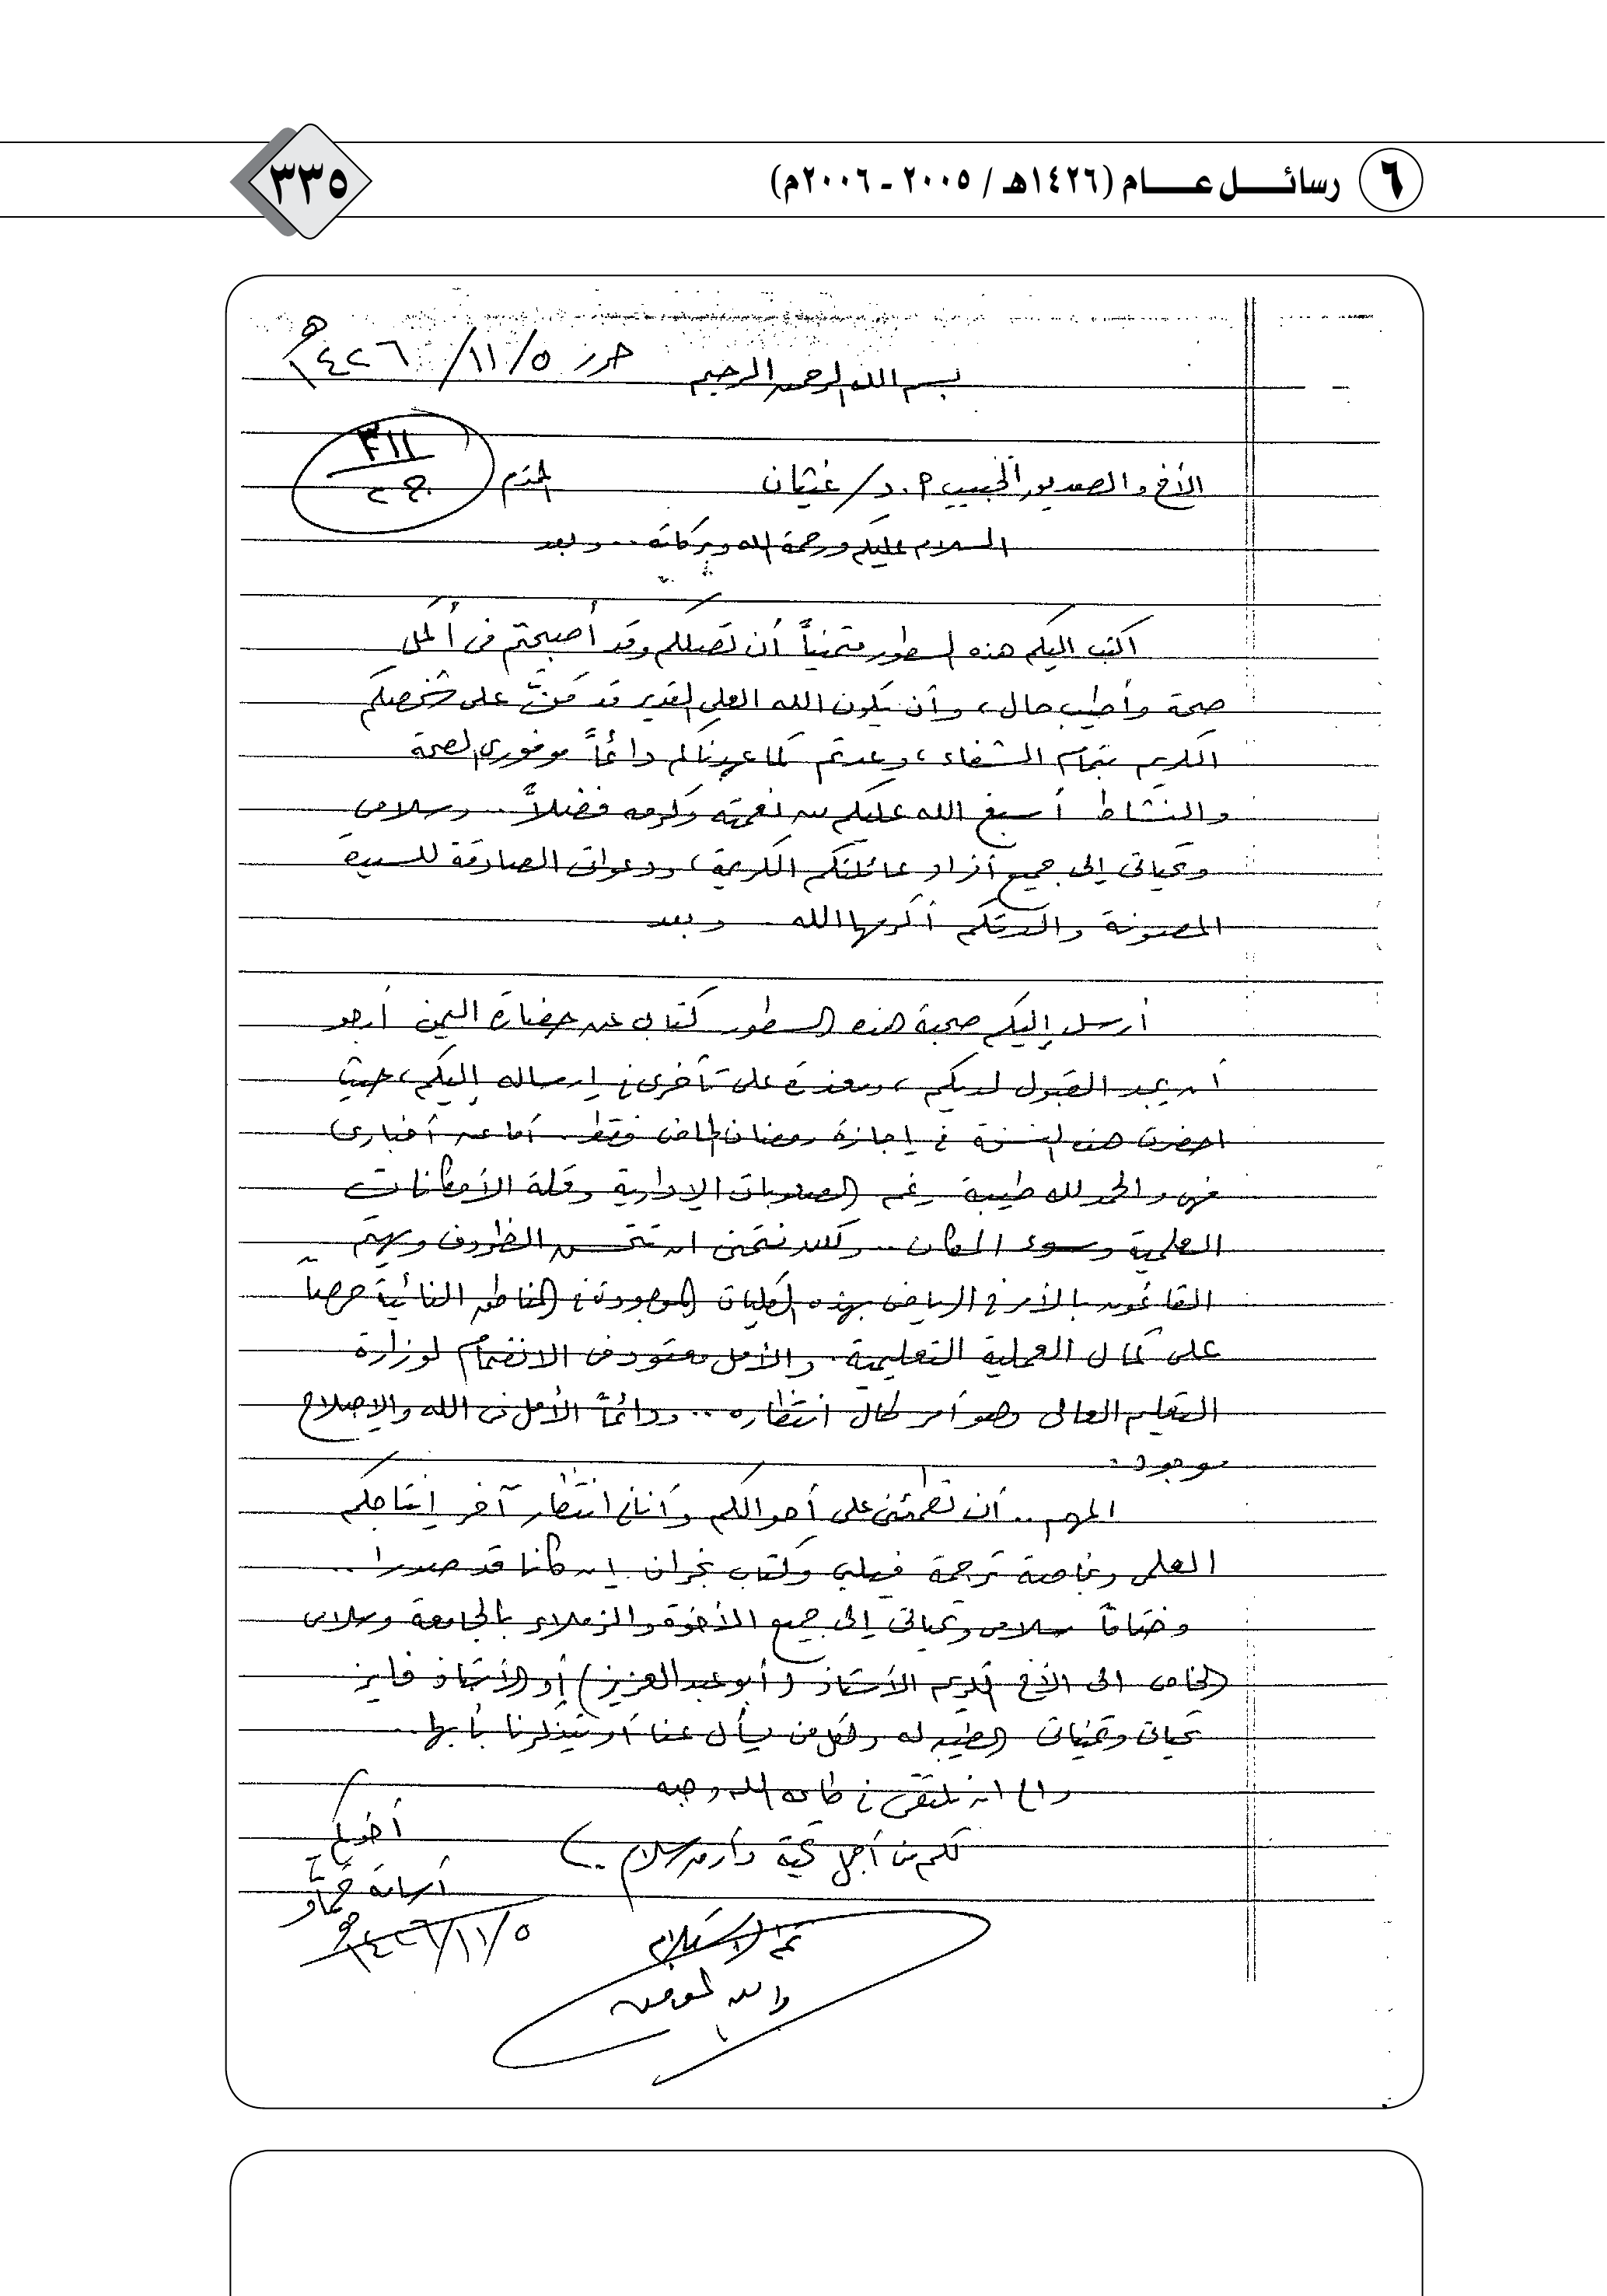 ٦ رسائل عام (١٤٢٦هـ / ٢٠٠٥ - ٢٠٠٦م)
٣٣٥
بسم الله الرحمن الرحيم
حرر ١٤٢٦/١١/٥هـ
الأخ والصديق الحبيب أ.د/ غيثان المحترم
٣١١
السلام عليكم ورحمة الله وبركاته .. وبعد
أكتب اليكم هذه السطور متمنياً أن تصلكم وقد أصبحتم في أكمل
صحة وأطيب حال، وأن يكون الله العلي القدير قد مَنَّ على شخصكم
الكريم بتمام الشفاء، وعدتم كما عهدناكم دائماً موفوري الصحة
والنشاط أسبغ الله عليكم من نعمته وكرمه فضلاً .. وسلامي
وتحياتي إلى جميع أفراد عائلتكم الكريمة، ودعواتي الصادقة للسيدة
المصونة والدتكم أكرمها الله .. وبعد
أرسل إليكم صحبة هذه السطور كتابي عن حضارة اليمن أرجو
أن يجد القبول لديكم، ومعذرة على تأخري في إرساله إليكم، حيث
احضرت هذه النسخة في إجازة رمضان الماضي فقط. أما عن أخباري
فهي والحمد لله طيبة رغم الصعوبات الإدارية وقلة الأمكانات
العلمية وسوء المكان .. ولكن نتمنى ان تتحسن الظروف ويهتم
القائمون بالأمر في الرياض بهذه الكليات الموجودة في المناطق النائية حرصاً
على كمال العملية التعليمية. والأمل معقود في الانضمام لوزارة
التعليم العالي وهو أمر طال انتظاره .. ودائماً الأمل في الله والإصلاح
موجود.
المهم .. أن تطمئني على أحوالكم وأنا في انتظار آخر إنتاجكم
العلمي وبخاصة ترجمة فيلبي وكتاب نجران إن كانا قد صدرا ..
وختاماً سلامي وتحياتي إلى جميع الأخوة والزملاء بالجامعة وسلامي
الخاص الى الأخ الكريم الأستاذ (أبو عبد العزيز) أو الأستاذ فايز
تحياتي وتمنياتي الطيبه له ولكل من يسأل عنا أو يتذكرنا بأبها ..
وإلى ان نلتقي في طاعة الله وحبه
لكم منا أجمل تحية وأرق سلام ..
أخوكم
أسامة حماد
١٤٢٦/١١/٥هـ
تم الاستلام
والله الموفق